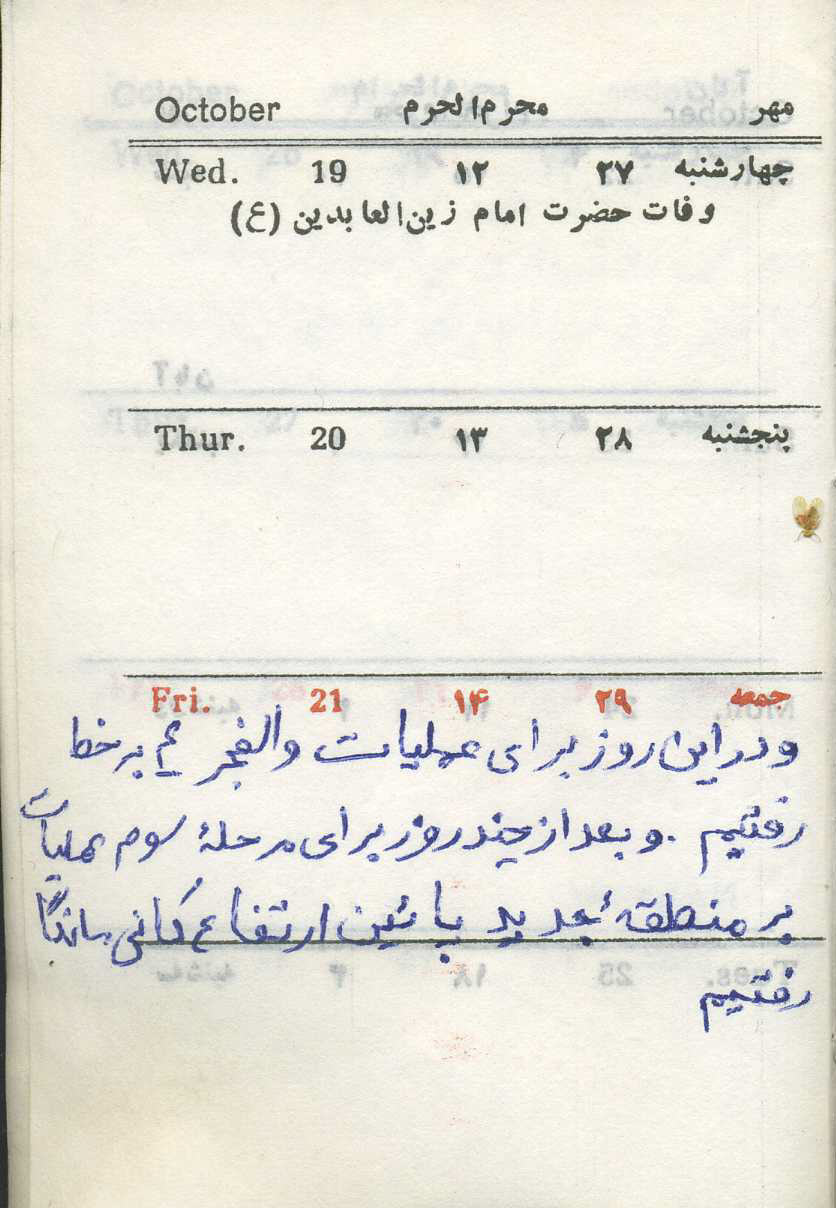 مهر محرم‌الحرم October
چهارشنبه ۲۷ ۱۲ 19 Wed.
وفات حضرت امام زین‌العابدین (ع)
پنجشنبه ۲۸ ۱۳ 20 Thur.
جمعه ۲۹ ۱۴ 21 Fri.
و در این روز برای عملیات والفجر ۴ به خط
رفتیم . و بعد از چند روز برای مرحلهٔ سوم عملیات
بر منطقهٔ جدید پائین ارتفاع کانی مانگا
رفتیم